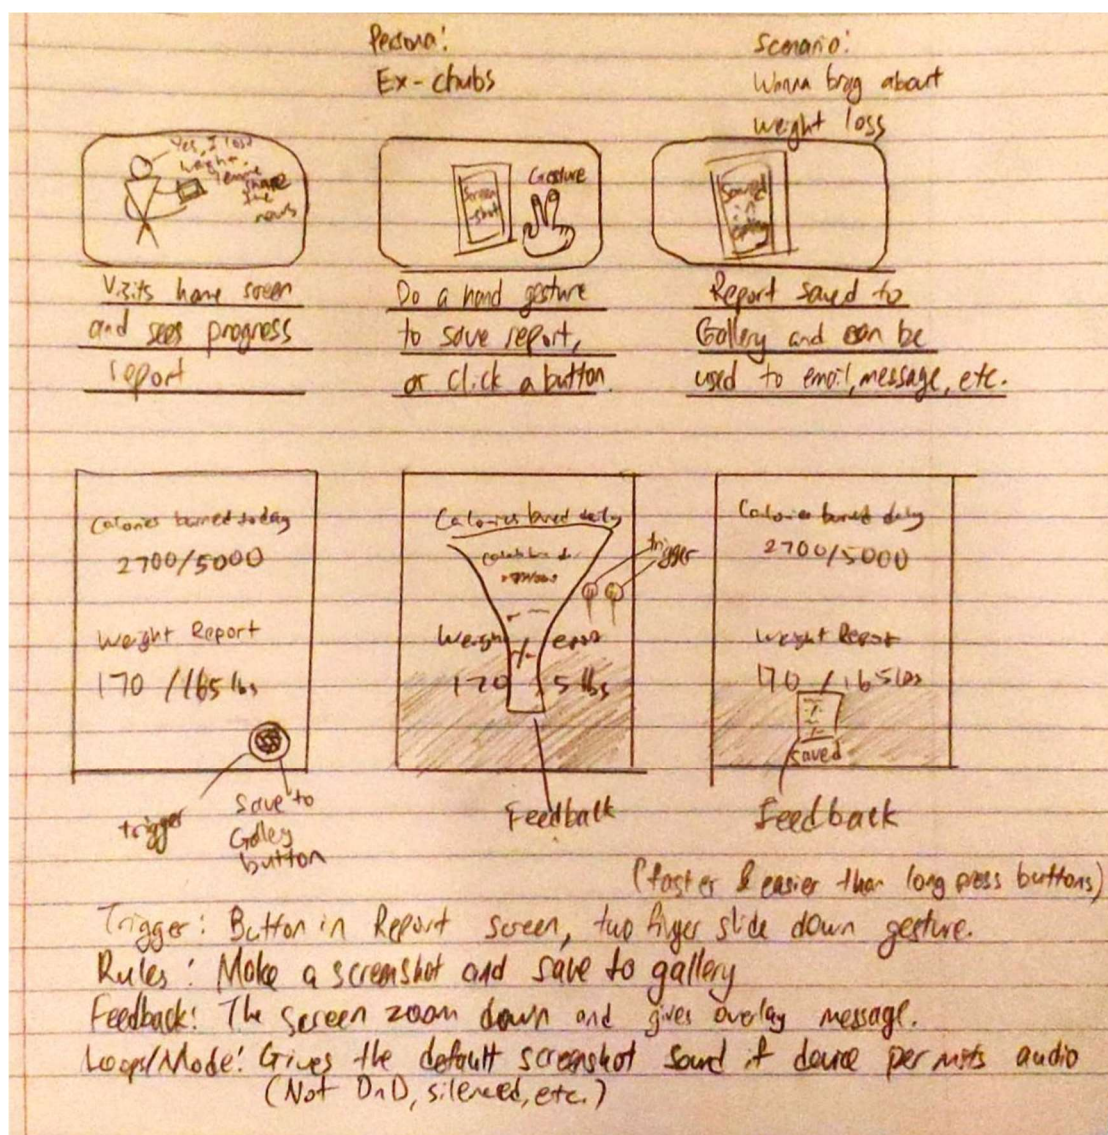 Persona:
Ex-chubs
Scenario:
Wanna brag about
weight loss
Yes, I lost
weight,
lemme
share
the
news
Screen
-shot
Gesture
Saved
in
Visits home screen
and sees progress
report
Do a hand gesture
to save report,
or click a button.
Report saved to
Gallery and can be
used to email, message, etc.
Calories burned today
2700/5000
Weight Report
170 /165 lbs
trigger
Save to
Galley
button
Calories burned daily
trigger
Weight
170 5 lbs
Feedback
Calories burned daily
2700/5000
Weight Report
170 /165 lbs
saved
Feedback
(faster & easier than long press buttons)
Trigger: Button in Report screen, two finger slide down gesture.
Rules: Make a screenshot and save to gallery
Feedback: The screen zoom down and gives overlay message.
Loops/Mode: Gives the default screenshot sound if device permits audio
(Not DnD, silenced, etc.)